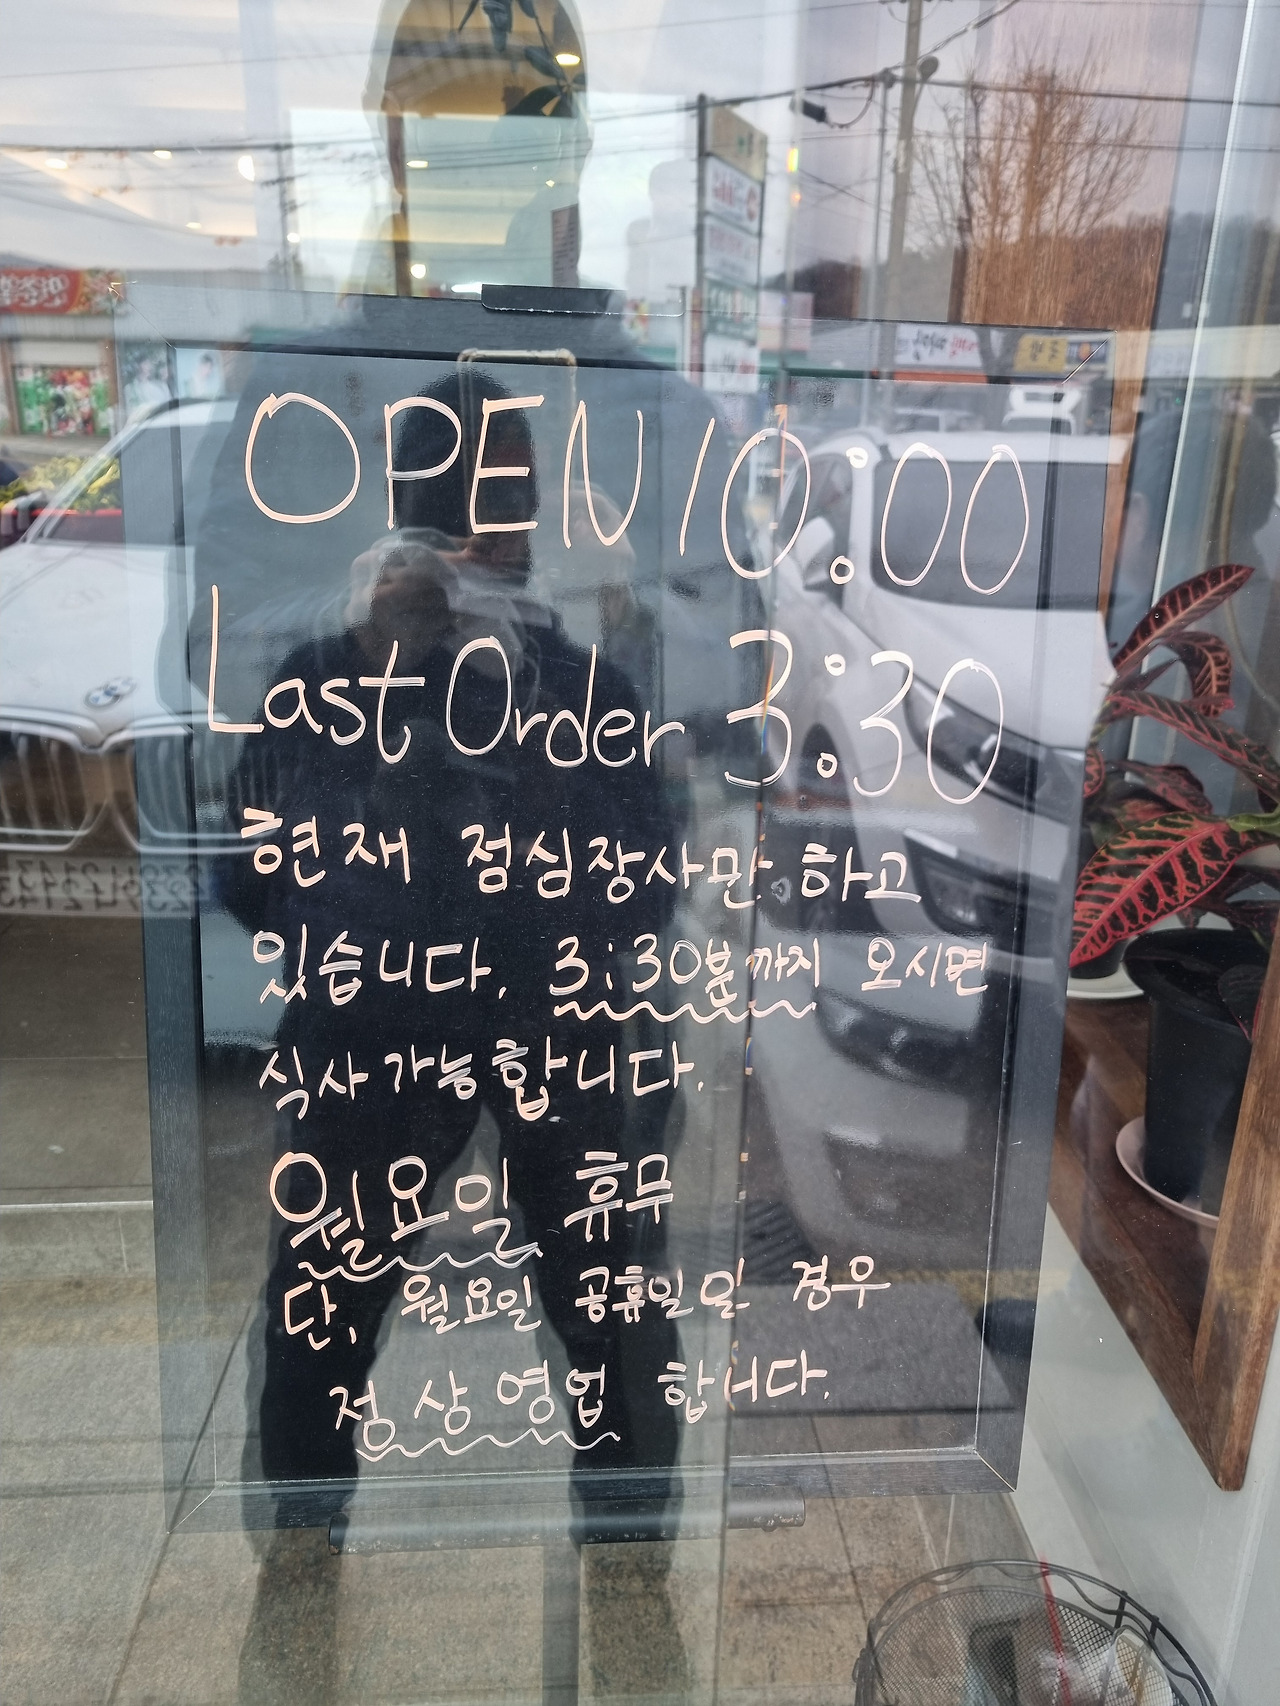 OPEN 10:00
Last Order 3:30
현재 점심장사만 하고
있습니다. 3:30분까지 오시면
식사가능합니다.
월요일 휴무
단, 월요일 공휴일일 경우
정상영업 합니다.